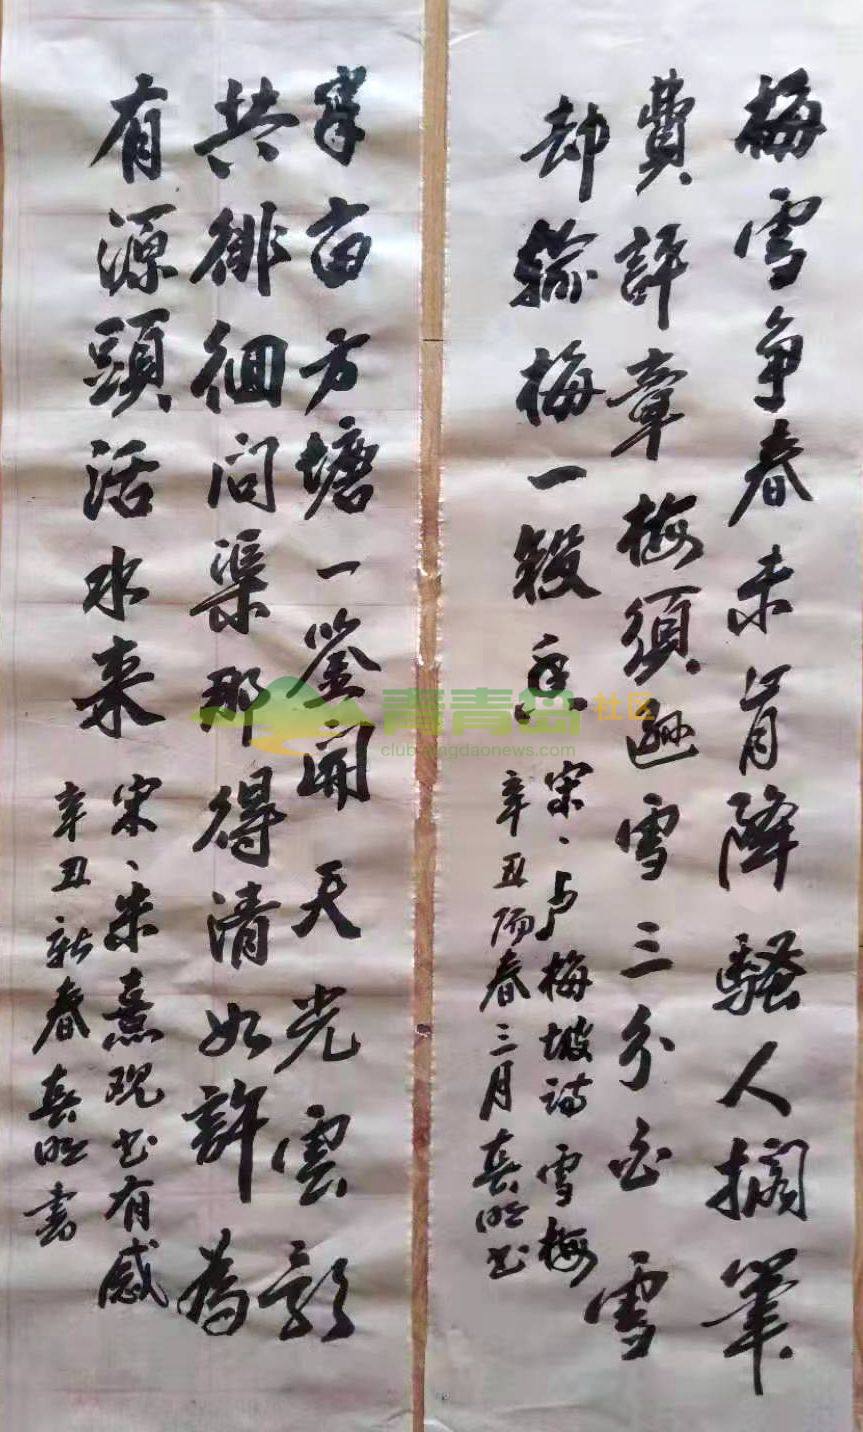 梅雪争春未肯降騷人擱筆
費評章梅須遜雪三分白雪
却輸梅一段香
宋、卢梅坡詩雪梅
辛丑陽春三月书
半亩方塘一鑒開天光雲影
共徘徊問渠那得清如許為
有源頭活水来
宋、朱熹观书有感
辛丑新春書
青青岛社区
club.qingdaonews.com